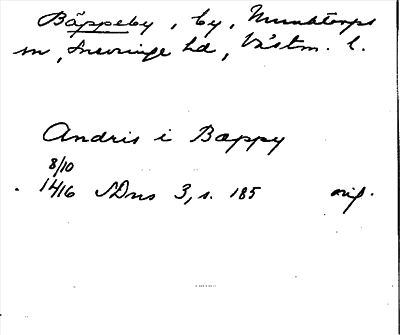 Bäppeby, by, Munktorps
sn, Snevringe hd, Västm. l.
Andris i Bappy
8/10
1416 SDns 3, s. 185 orig.